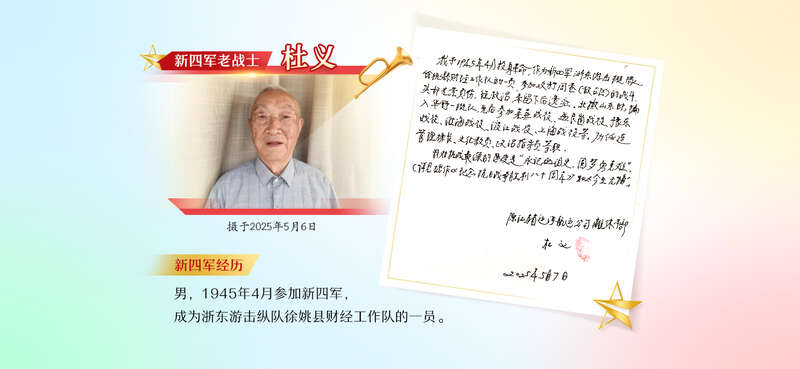 新四军老战士 杜义
摄于2025年5月6日
新四军经历
男，1945年4月参加新四军，
成为浙东游击纵队徐姚县财经工作队的一员。
我于1945年4月投身革命，作为新四军浙东游击纵队
徐姚县财经工作队的一员，参加攻打
的战斗，
入华野一纵队，先后参加莱芜战役、孟良崮战役、豫东
战役、淮海战役、渡江战役、上海战役等，历任连
管理排长、文化教员、政治指导员等职。
"永记血泪史，圆梦
纪念抗日战争胜利八十周年
公司离休干部
杜义
2025年5月7日